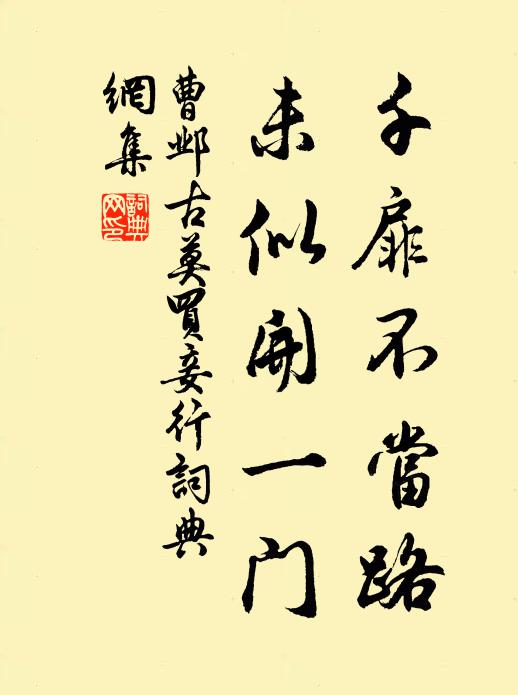 千扉不當路
未似開一門
曹邺古莫買妾行詞典
網集
詞典
网印